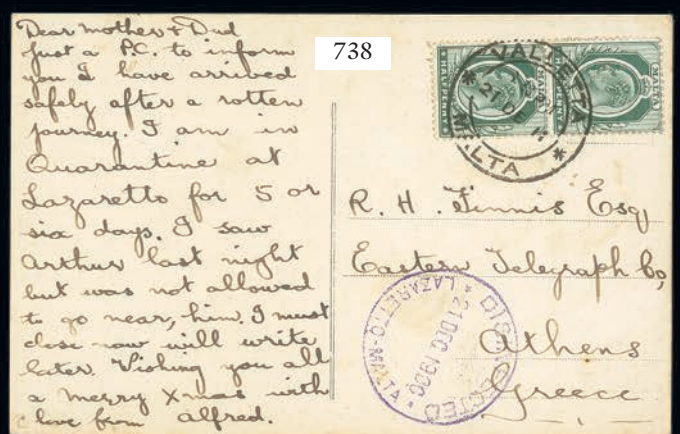 Dear Mother & Dad
Just a P.C. to inform
you I have arrived
safely after a rotten
journey. I am in
Quarantine at
Lazaretto for 5 or
six days. I saw
Arthur last night
but was not allowed
to go near, him. I must
close now will write
later. Wishing you all
a merry Xmas with
love from Alfred.
738
VALLETTA
MALTA
MALTA
HALFPENNY
MALTA
HALFPENNY
R. H. Finnis Esq
Eastern Telegraph Co,
Athens
Greece
DISINFECTED
21 DEC 1900
LAZARETTO-MALTA